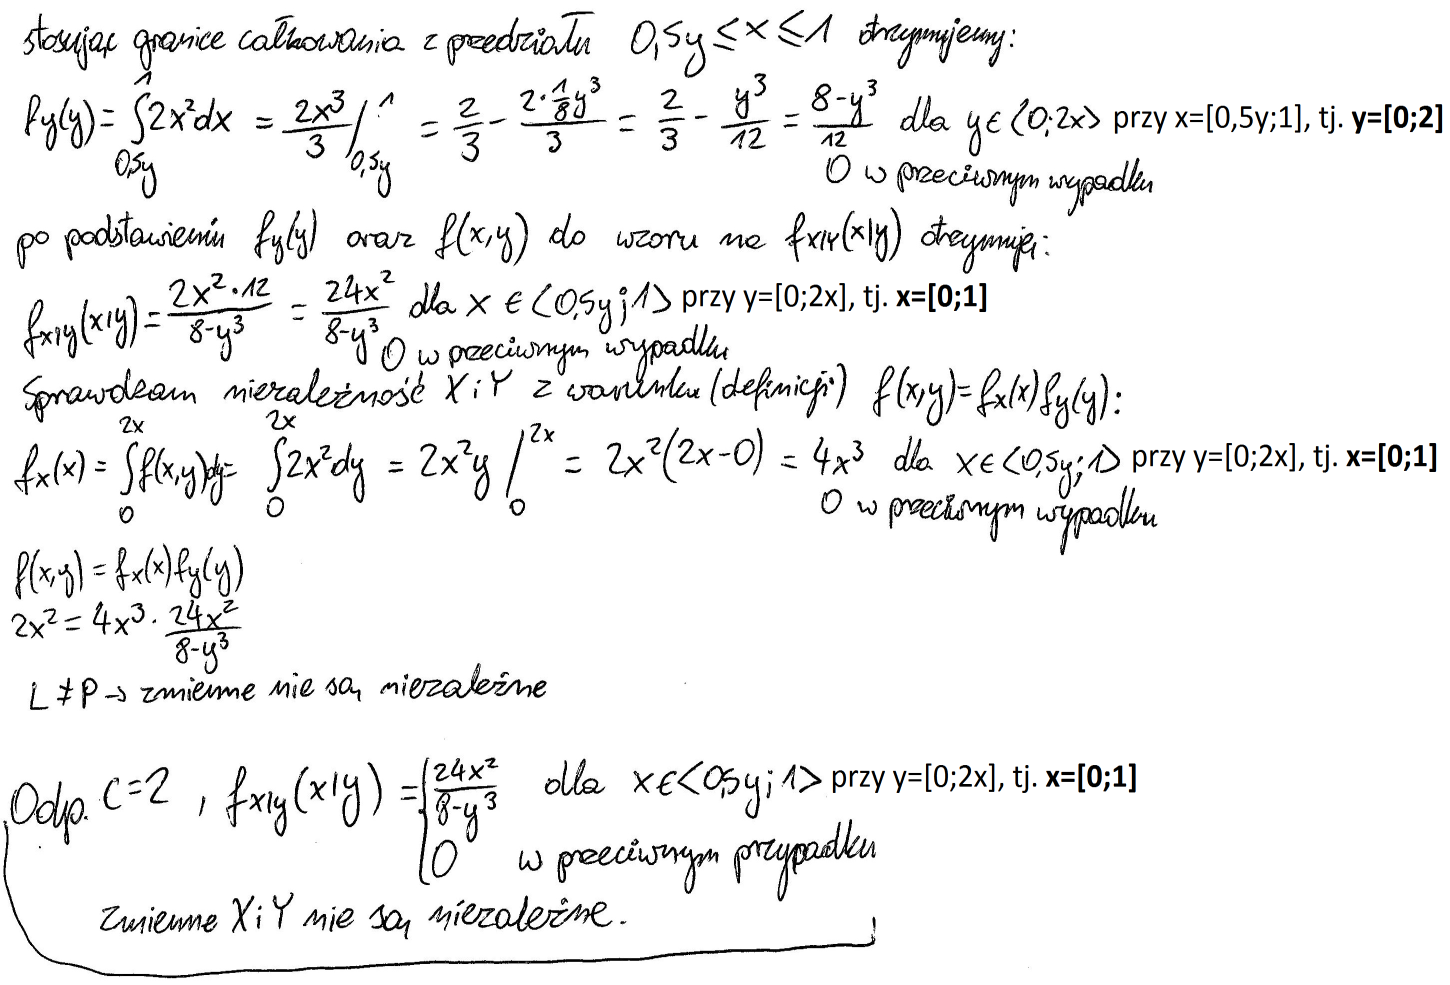 stosując granice całkowania z przedziału 0,5y ≤ x ≤ 1 otrzymujemy:
fy(y) = ∫_{0,5y}^{1} 2x²dx = 2x³/3 |_{0,5y}^{1} = 2/3 - (2·1/8y³)/3 = 2/3 - y³/12 = (8-y³)/12 dla y ∈ <0;2x> przy x=[0,5y;1], tj. y=[0;2]
0 w przeciwnym wypadku
po podstawieniu fy(y) oraz f(x,y) do wzoru na fx|Y(x|y) otrzymuję:
fx|y(x|y) = (2x²·12)/(8-y³) = 24x²/(8-y³) dla x ∈ <0,5y;1> przy y=[0;2x], tj. x=[0;1]
0 w przeciwnym wypadku
Sprawdzam niezależność X i Y z warunku (definicji) f(x,y)=fx(x)fy(y):
fx(x) = ∫_{0}^{2x} f(x,y)dy = ∫_{0}^{2x} 2x²dy = 2x²y |_{0}^{2x} = 2x²(2x-0) = 4x³ dla x∈<0,5y;1> przy y=[0;2x], tj. x=[0;1]
0 w przeciwnym wypadku
f(x,y) = fx(x)fy(y)
2x² = 4x³ · 24x²/(8-y³)
L ≠ P → zmienne nie są niezależne
Odp. C=2 , fx|y(x|y) = { 24x²/(8-y³) dla x∈<0,5y;1> przy y=[0;2x], tj. x=[0;1]
0 w przeciwnym przypadku
zmienne X i Y nie są niezależne.